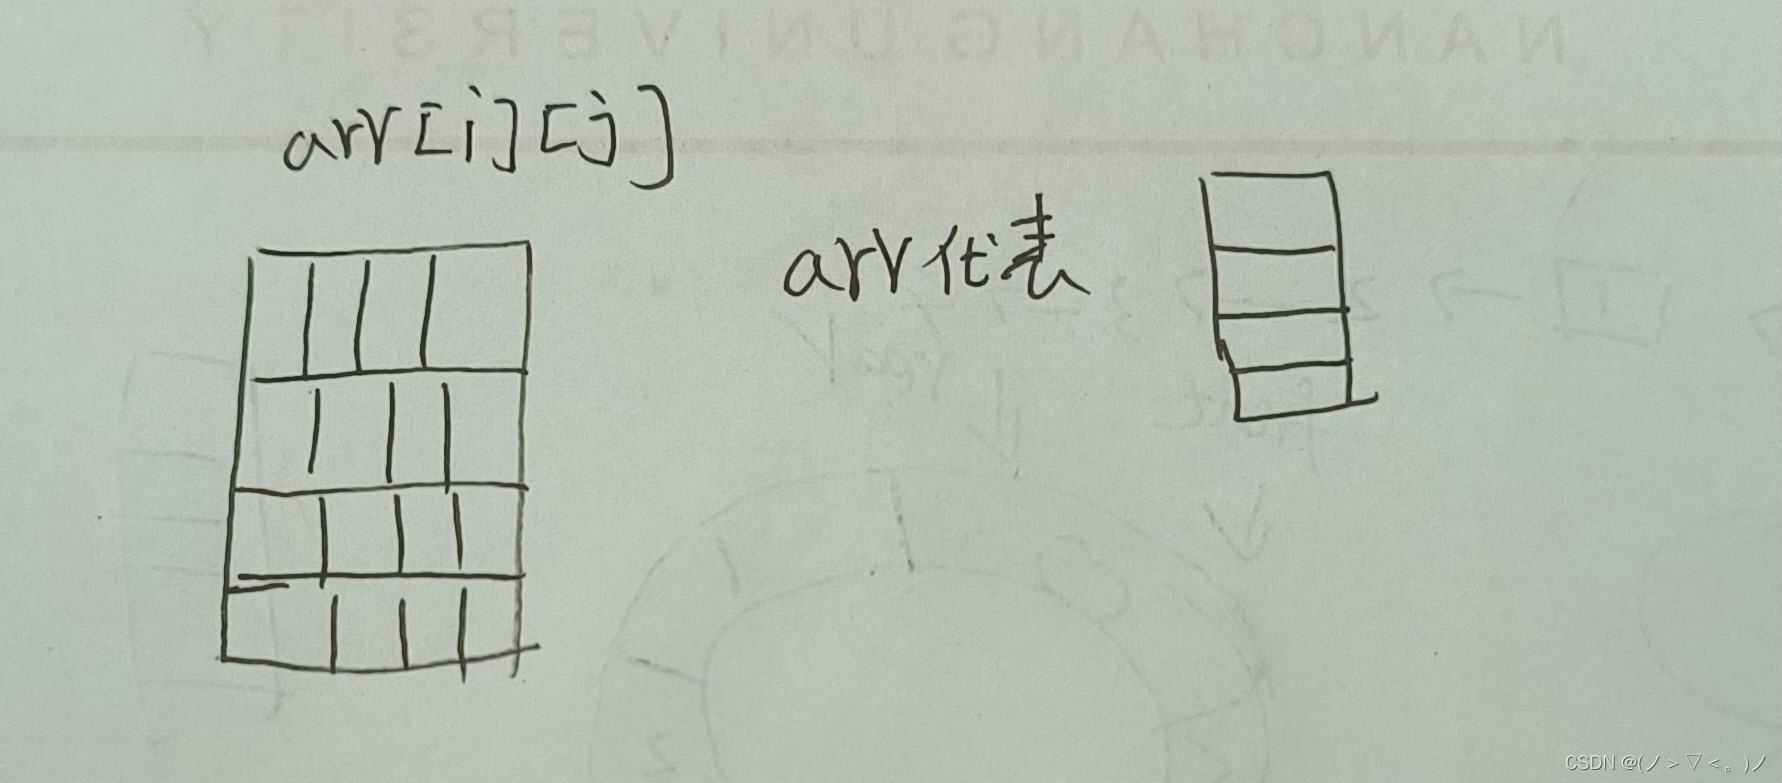 NANCHANG UNIVERSITY
arr[i][j]
arr代表
CSDN @(ノ＞▽＜。)ノ